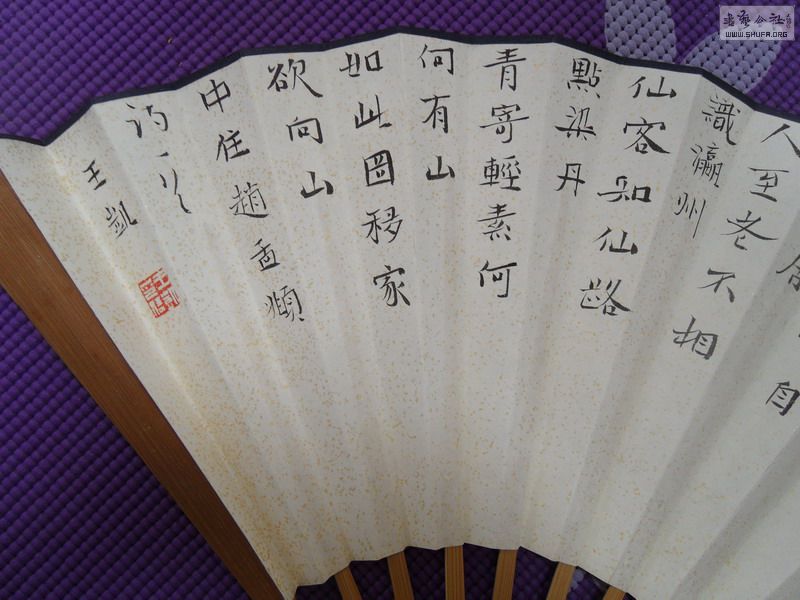 自
人至老不相
識瀛州
仙客知仙路
點染丹
青寄輕素何
何有山
如此圖移家
欲向山
中住趙孟頫
詩一首
王凱
書藝公社
WWW.SHUFA.ORG